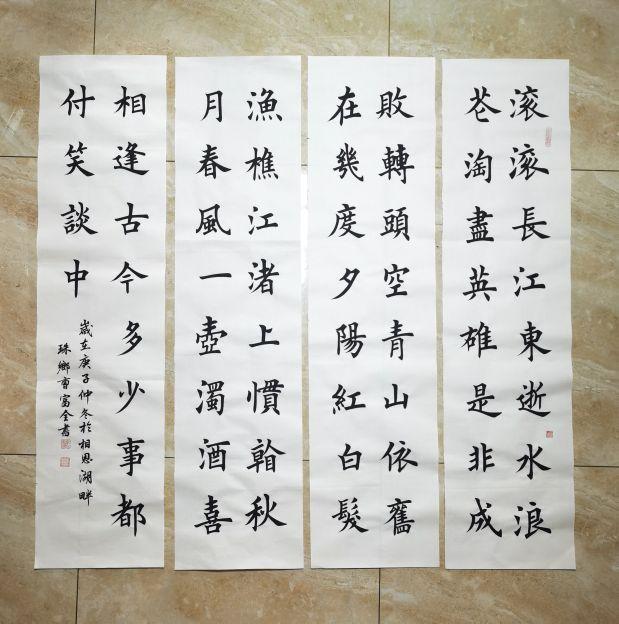 滚滚長江東逝水浪
花淘盡英雄是非成
敗轉頭空青山依舊
在幾度夕陽紅白髮
漁樵江渚上慣看秋
月春風一壺濁酒喜
相逢古今多少事都
付笑談中
歲在庚子仲冬於相恩湖畔
珠鄉曹富全書